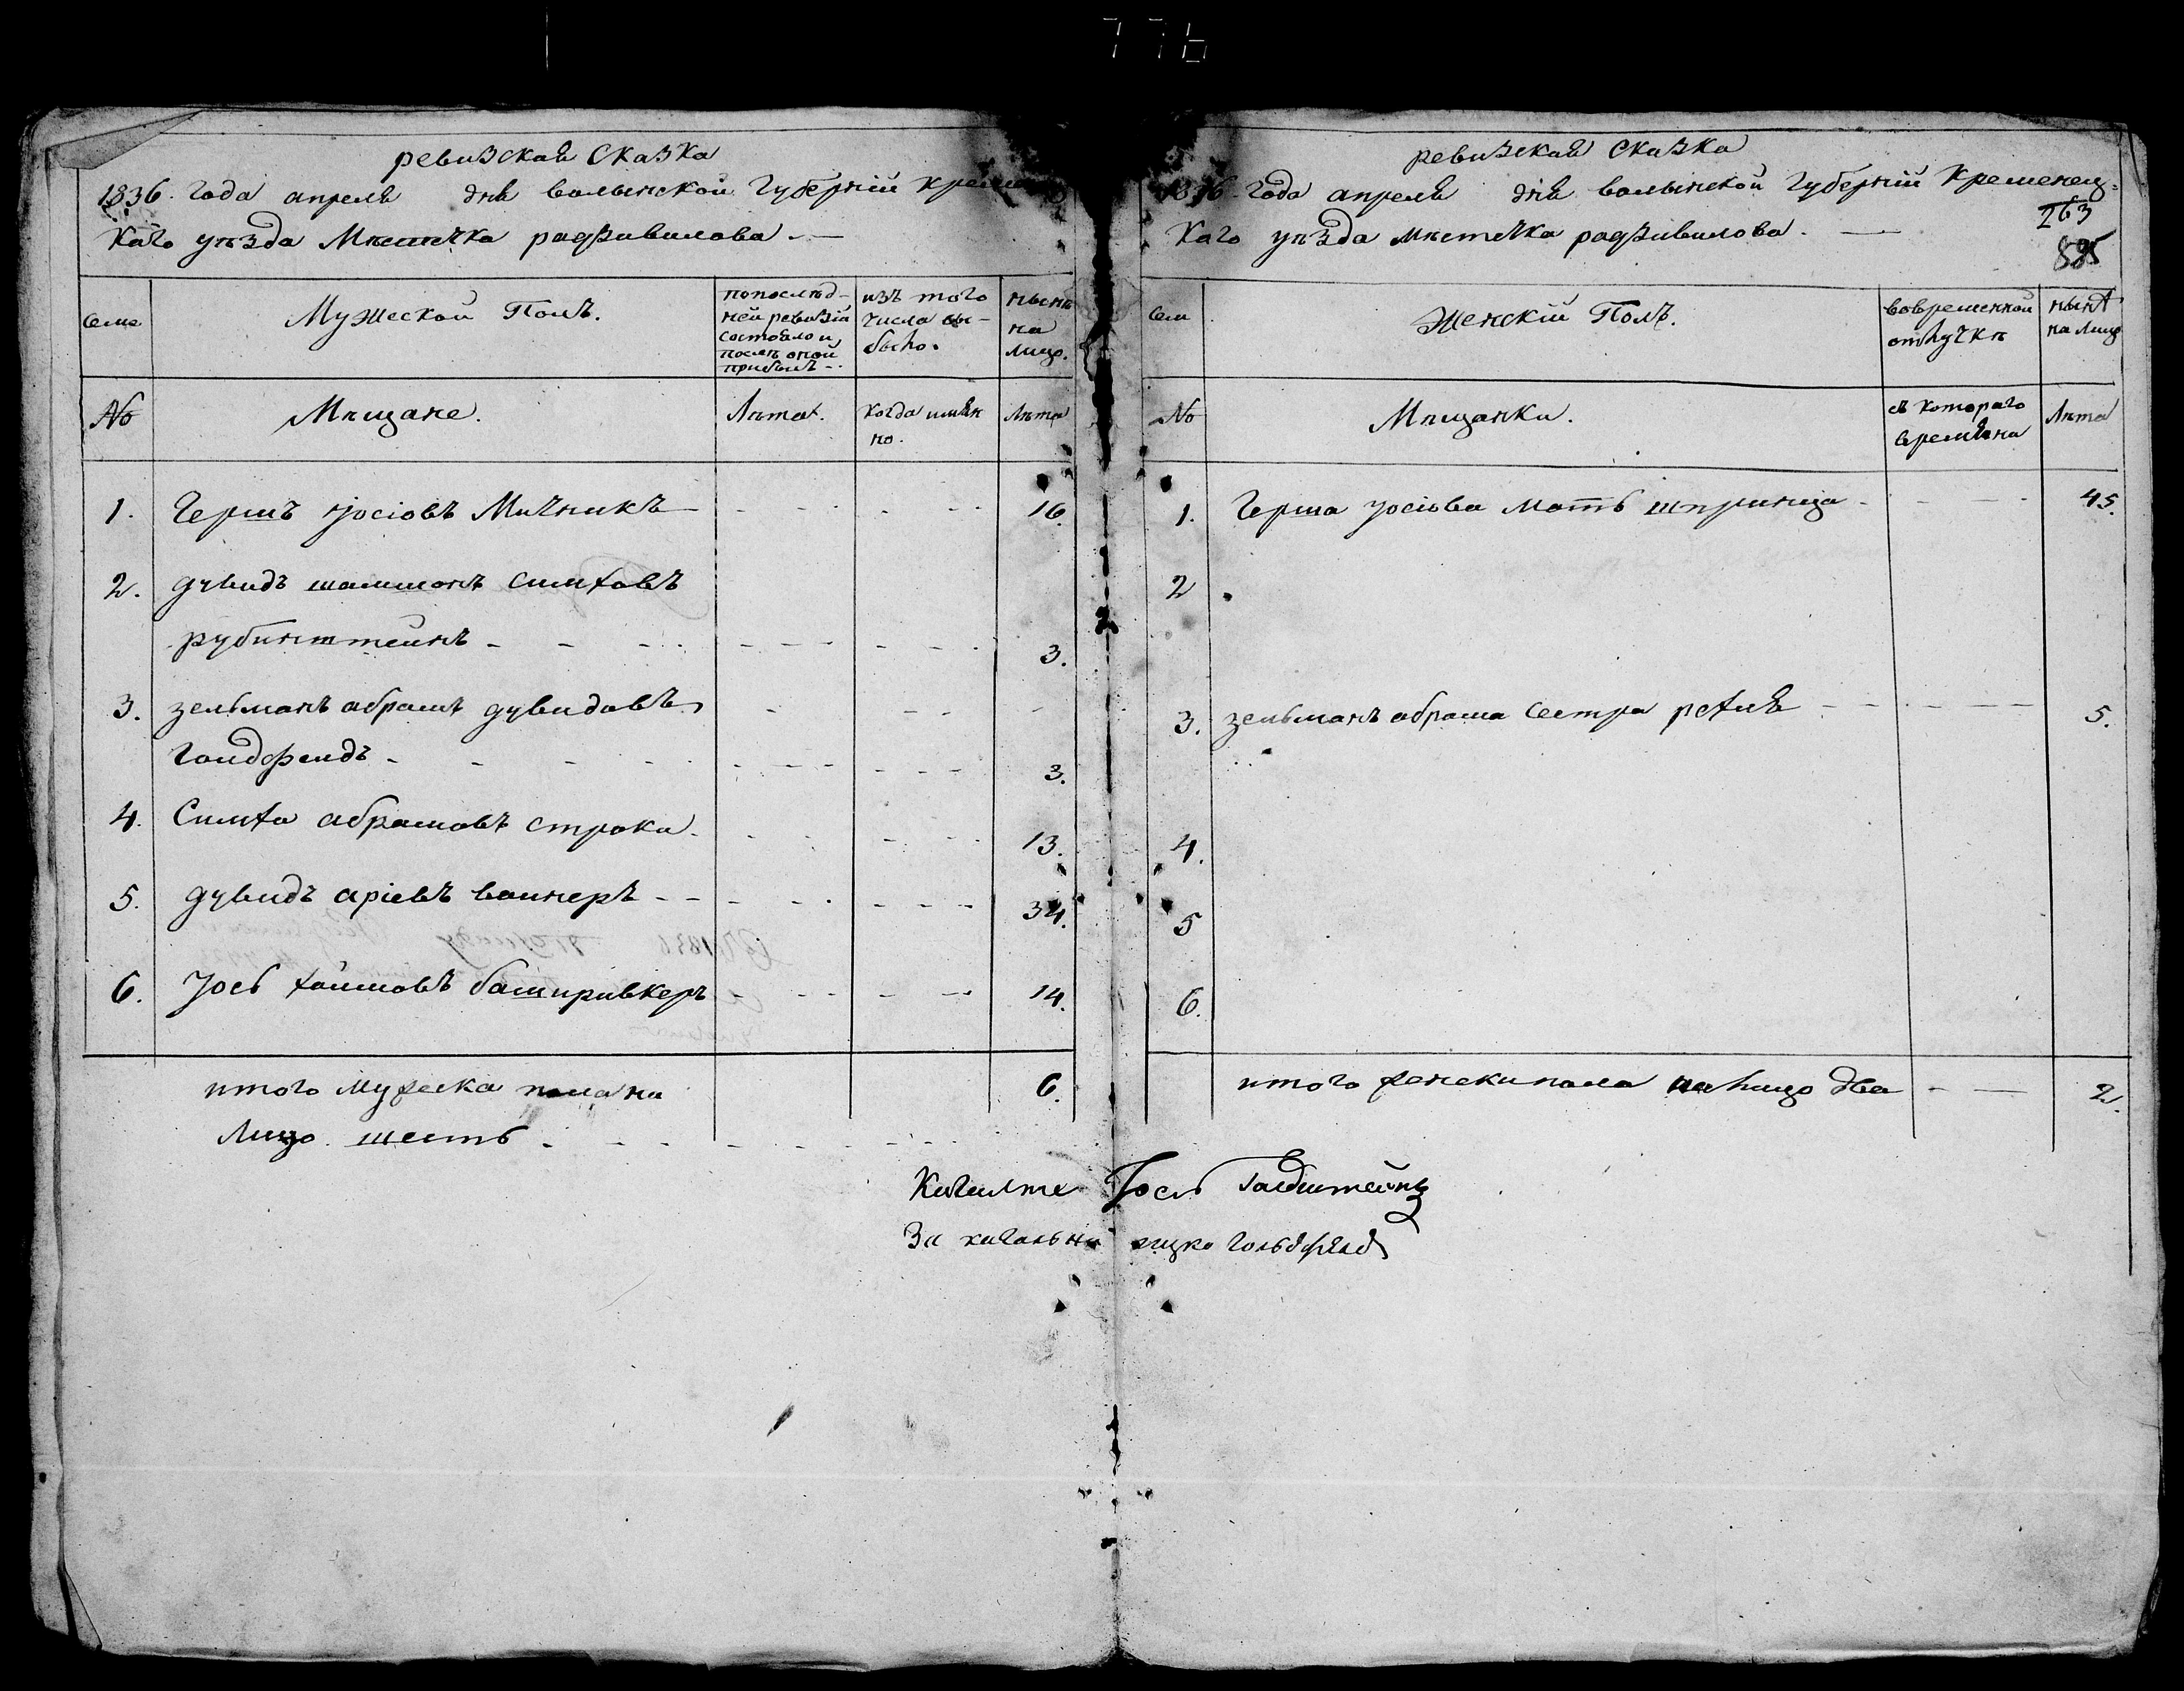 ревизская Сказка
1836. года апреля дня волынской Губерніи кремен
Каго уѣзда Мѣстечка радзивилова. —
Семе
Мужеской Полъ.
попослѣд-
ней ревизіи
состояло и
послѣ оной
прибылъ -.
изъ того
числа вы-
было.
нынѣ
на
лицо.
№
Мѣщане.
Лѣта.
когда имян
но.
Лѣта
1. Гершъ Іосіовъ Мичникъ 16.
2. дувидъ шамшонъ симховъ
рубинштейнъ 3.
3. зельманъ абрамъ дувидовъ
голдфелдъ 3.
4. Симха абрамовъ строки 13.
5. дувидъ аріевъ вайнеръ 34.
6. Јось хаймовъ башпривкеръ 14.
итого мужеска пола на 6.
Лицо шесть
ревизская Сказка
1836 года апреля дня волынской губерніи Кременец-
Каго уѣзда мѣстечка радзивилова. —
263
885
Сем
Женскій Полъ.
вовременной
отлучкѣ
нынѣ
на лицо
№
Мѣщанки.
съ котораго
времяни
Лѣта
1. Герша Јосіова мать шпринца 45.
2
3. зельманъ абрама сестра рехля 5.
4.
5
6.
итого женски пола на лицо два — 2.
Јось Галдштейнъ
За кагальна ицко гольдфелд